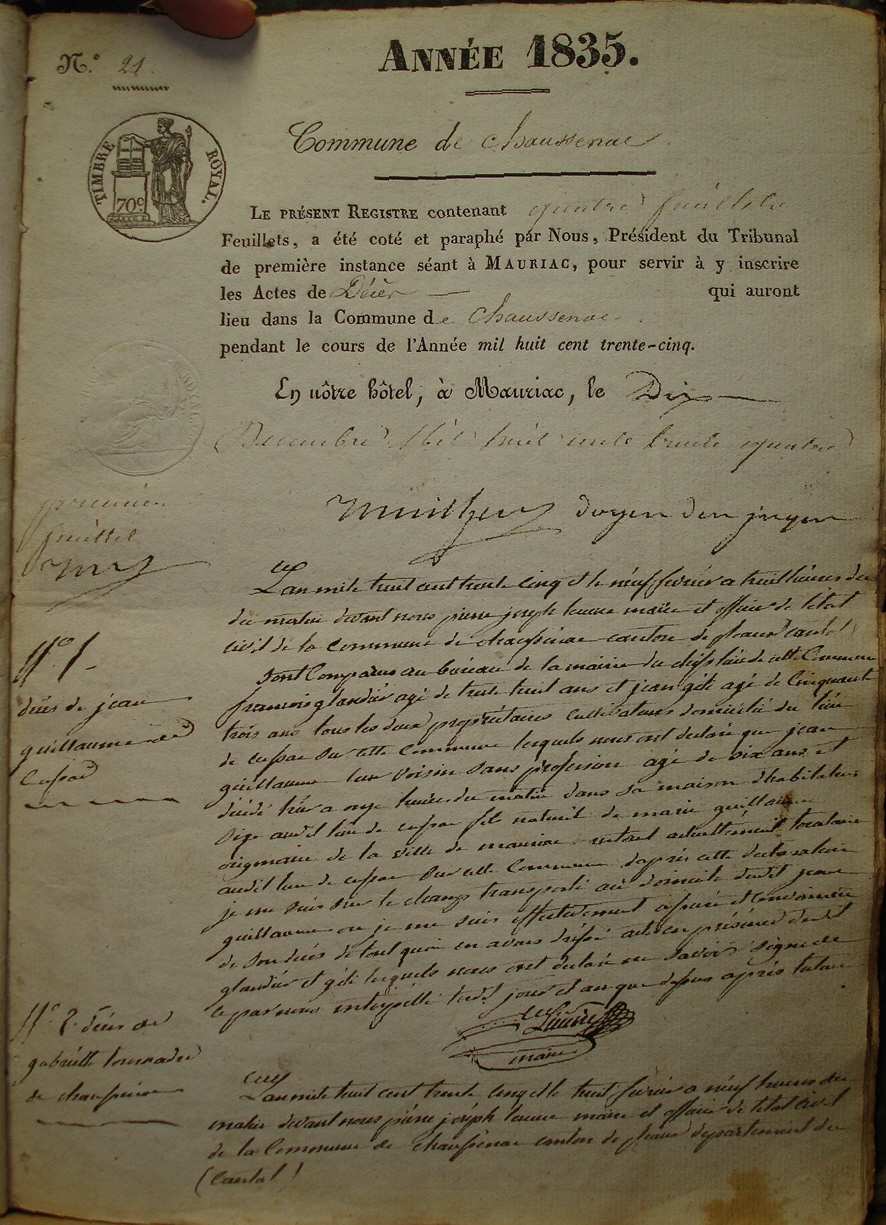 N.° 21.
ANNÉE 1835.
TIMBRE ROYAL.
70c
Commune de chaussenac
LE PRÉSENT REGISTRE contenant quatre feuillets
Feuillets, a été coté et paraphé par Nous, Président du Tribunal
de première instance séant à MAURIAC, pour servir à y inscrire
les Actes de Décès qui auront
lieu dans la Commune de chaussenac
pendant le cours de l'Année mil huit cent trente-cinq.
En nôtre hôtel, à Mauriac, le Dix
Decembre Mil huit cents trente quatre
doyen des juges
premier
feuillet
L'an mile huit cent trente cinq et le neuf fevrier a huit heures du
du matin devant nous pierre joseph maire et officier de létat
civil de la commune de chaussenac canton de pleaux (cantal)
N° 1
décès de jean
guillaume de
cussac
sont comparus au bureau de la mairie du cette Commune
francois glandier agé de trente huit ans et jean géde agé de cinquante
trois ans tous les deux propriétaires cultivateurs domicilié du lieu
de cussac sur cette commune lesquels nous ont déclaré que jean
guillaume leur voisin sans profession agé de six ans et
décédé hier a onze heures du matin dans sa maison dhabitation
size audit lieu de cussac fils naturel de marie guillaume
originaire de la ville de mauriac actuellement locataire
audit lieu de cussac sur cette Commune daprès cette declaration
je me suis sur le champ transporté au domicile dudit jean
guillaume ou je me suis effectivement
de son décès de tout quoi en avons acte en présence dudit
glandier et géde lesquels nous ont declaré ne savoir signer de
ce par nous interpellé jour et an que dessus après lecture
maire
N° 2 décès de
gabrielle
de chaussenac
L'an mile huit cent trente cinq et le huit fevrier a neuf heures du
matin devant nous pierre joseph maire et officier de létat civil
de la Commune de chaussenac canton de pleaux departement du
(Cantal)